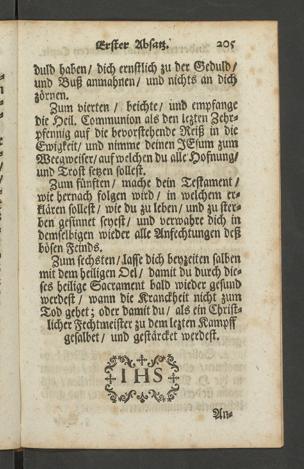 Erster Absatz. 205
duld haben / dich ernstlich zu der Gedult /
und Buß anmahnen / und nichts an dich
zörnen.
Zum vierten / beichte / und empfange
die Heil. Communion als den lezten Zehr-
pfennig auf die bevorstehende Reiß in die
Ewigkeit / und nimme deinen JEsum zum
Weegweiser / auf welchen du alle Hofnung /
und Trost setzen sollest.
Zum fünften / mache dein Testament /
wie hernach folgen wird / in welchem er-
klären sollest / wie du zu leben / und zu ster-
ben gesinnet seyest / und verwahre dich in
demselbigen wieder alle Anfechtungen deß
bösen Feinds.
Zum sechsten / lasse dich beyzeiten salben
mit dem heiligen Oel / damit du durch die-
ses heilige Sacrament bald wieder gesund
werdest / wann die Kranckheit nicht zum
Tod gehet ; oder damit du / als ein Christ-
licher Fechtmeister zu dem lezten Kampff
gesalbet / und gestärcket werdest.
IHS
An-